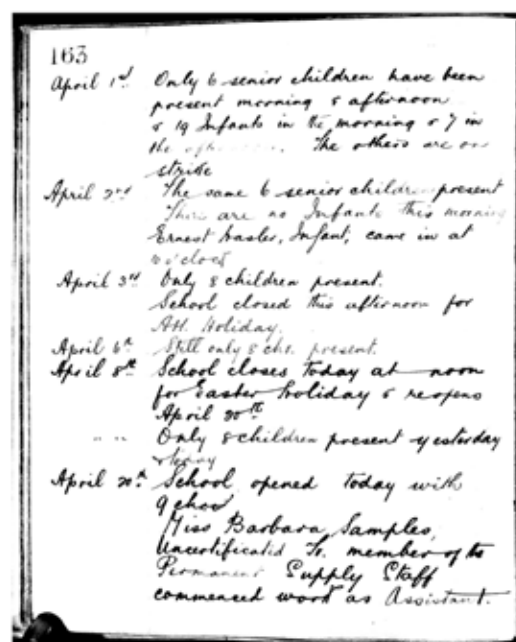 163
April 1st Only 6 senior children have been
present morning & afternoon
& 19 Infants in the morning & 7 in
the afternoon. The others are on
strike
April 2nd The same 6 senior children present
There are no Infants this morning
Ernest Infant, came in at
o'clock
April 3rd Only 8 children present.
School closed this afternoon for
Holiday.
April 6th Still only 8 chn. present.
April 8th School closes today at noon
for Easter holiday & reopens
April 20th
" " Only 8 children present yesterday
& today
April 20th School opened today with
9 chn
Miss Barbara Samples,
Uncertificated Tr. member of the
Permanent Supply Staff
commenced work as Assistant.